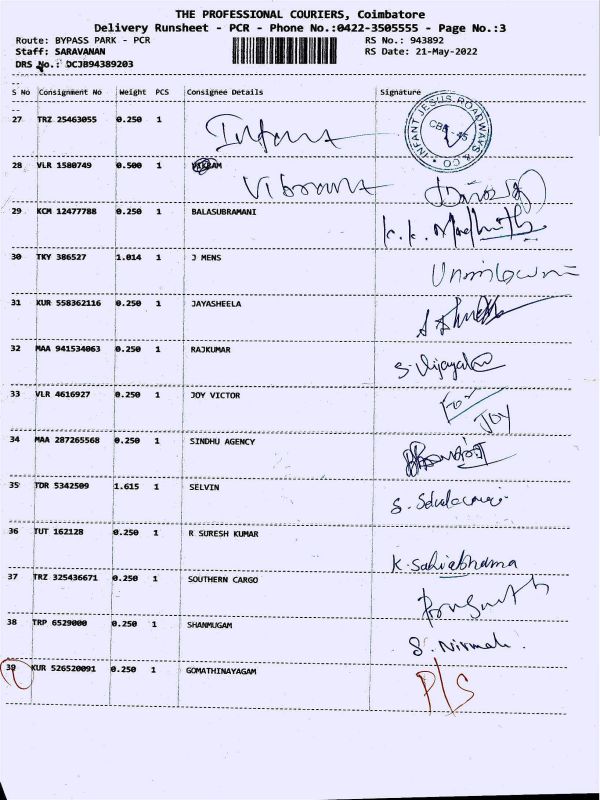 THE PROFESSIONAL COURIERS, Coimbatore
Delivery Runsheet - PCR - Phone No.:0422-3505555 - Page No.:3
Route: BYPASS PARK - PCR RS No.: 943892
Staff: SARAVANAN RS Date: 21-May-2022
DRS No.: DCJB94389203
S No Consignment No Weight PCS Consignee Details Signature
27 TRZ 25463055 0.250 1 Infant INFANT JESUS ROADWAYS & CO CBE - 45
28 VLR 1580749 0.500 1
Vibrant
29 KCM 12477788 0.250 1 BALASUBRAMANI K. K.
30 TKY 386527 1.014 1 J MENS
31 KUR 558362116 0.250 1 JAYASHEELA
32 MAA 941534063 0.250 1 RAJKUMAR S. Vijayal
33 VLR 4616927 0.250 1 JOY VICTOR For
JOY
34 MAA 287265568 0.250 1 SINDHU AGENCY
35 TDR 5342509 1.615 1 SELVIN S.
36 TUT 162128 0.250 1 R SURESH KUMAR K. Sahiabhama
37 TRZ 325436671 0.250 1 SOUTHERN CARGO
38 TRP 6529000 0.250 1 SHANMUGAM S. Nirmala
39 KUR 526520091 0.250 1 GOMATHINAYAGAM P/S